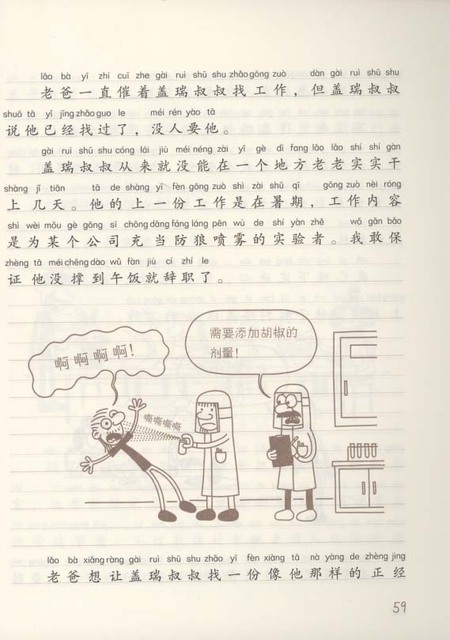 lǎo bà yī zhí cuī zhe gài ruì shū shu zhǎo gōng zuò dàn gài ruì shū shu
老爸一直催着盖瑞叔叔找工作，但盖瑞叔叔
shuō tā yǐ jīng zhǎo guo le méi rén yào tā
说他已经找过了，没人要他。
gài ruì shū shu cóng lái jiù méi néng zài yī gè dì fang lǎo lǎo shí shí gàn
盖瑞叔叔从来就没能在一个地方老老实实干
shàng jǐ tiān tā de shàng yī fèn gōng zuò shì zài shǔ qī gōng zuò nèi róng
上几天。他的上一份工作是在暑期，工作内容
shì wèi mǒu gè gōng sī chōng dāng fáng láng pēn wù de shí yàn zhě wǒ gǎn bǎo
是为某个公司充当防狼喷雾的实验者。我敢保
zhèng tā méi chēng dào wǔ fàn jiù cí zhí le
证他没撑到午饭就辞职了。
啊啊啊啊！
需要添加胡椒的
剂量！
嘶嘶嘶嘶
lǎo bà xiǎng ràng gài ruì shū shu zhǎo yī fèn xiàng tā nà yàng de zhèng jing
老爸想让盖瑞叔叔找一份像他那样的正经
59